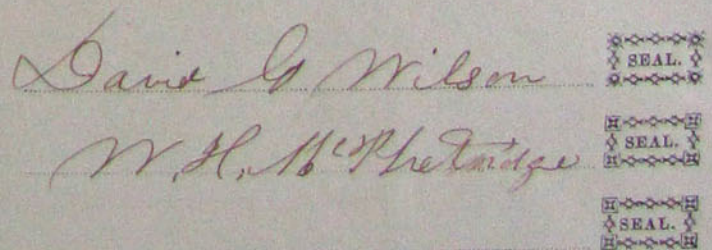 David G Wilson SEAL.
W. H. McPhetridge SEAL.
SEAL.